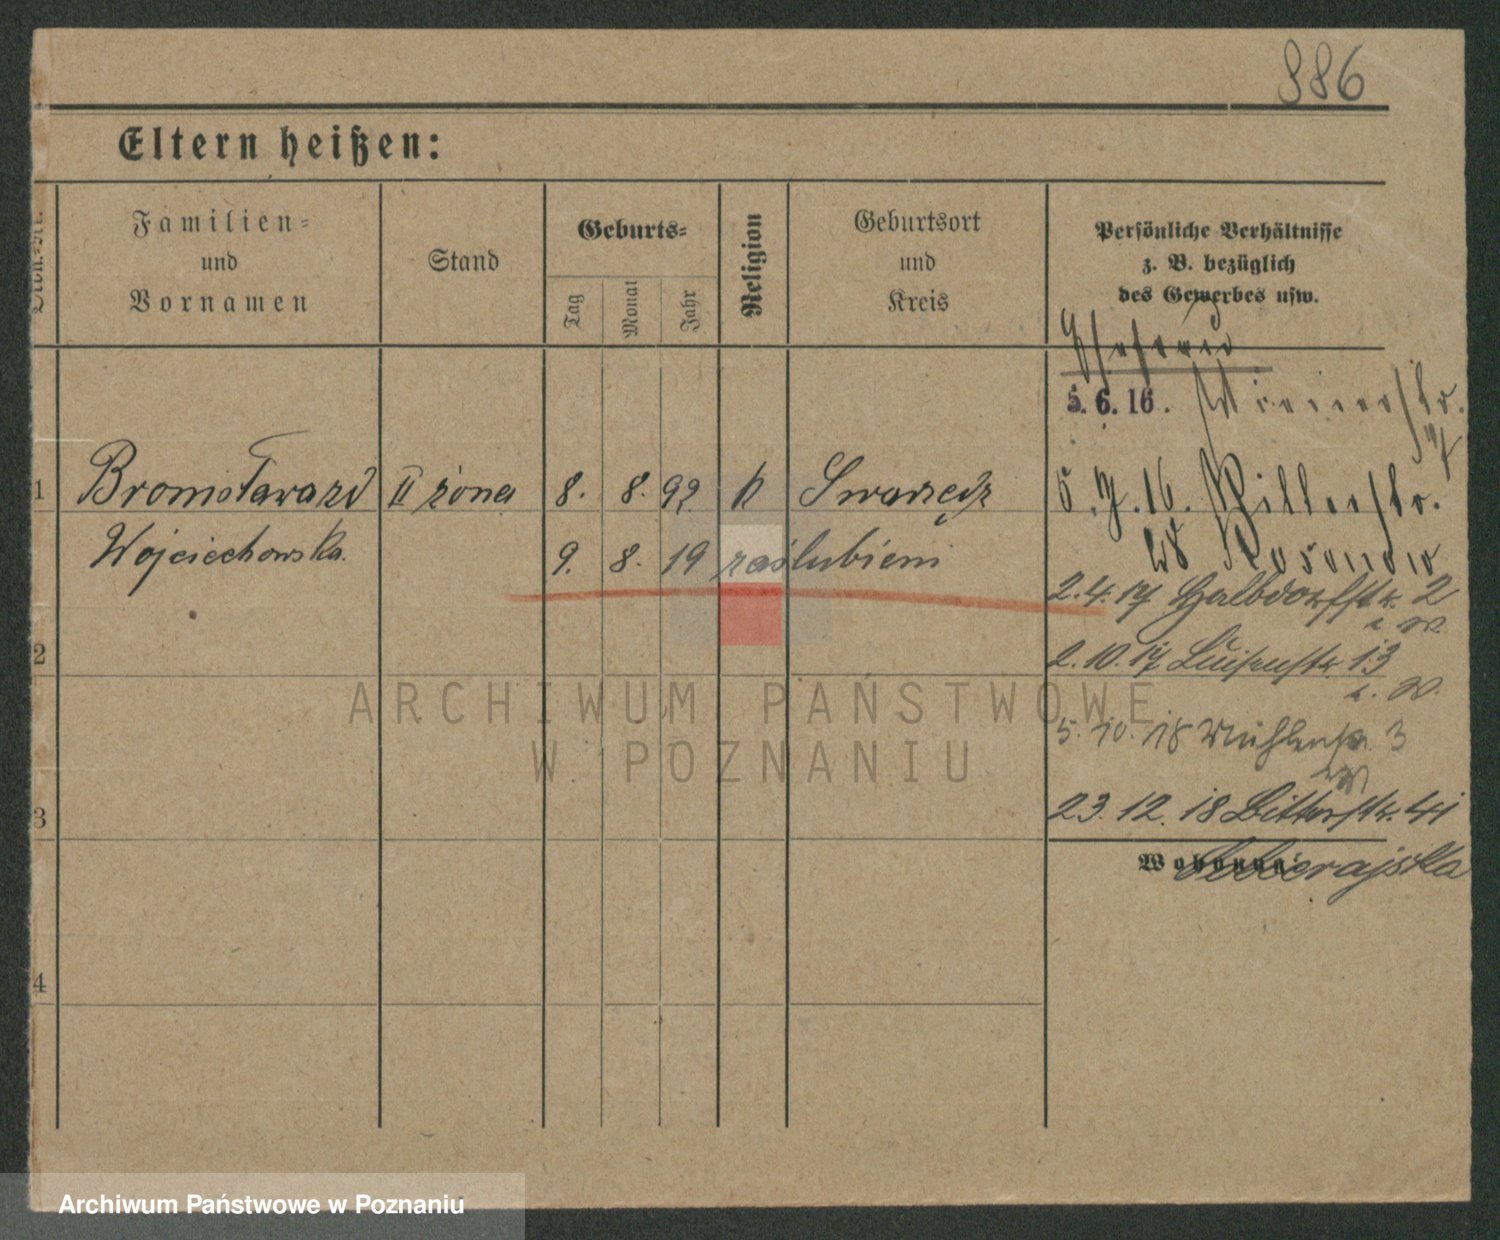 886
Eltern heißen:
Familien-
und
Vornamen
Stand
Geburts-
Tag
Monat
Jahr
Religion
Geburtsort
und
Kreis
Persönliche Verhältnisse
z. B. bezüglich
des Gewerbes usw.
5. 6. 16. Wienerstr.
1 Bronisława zd II żona 8. 8. 92 k Swarzędz
5. 7. 16. Ritterstr.
Wojciechowska. 9. 8. 19 zaślubieni
2.4.17 Halbdorfstr. 2
2
2.10.17 Luisenstr. 13
5. 10. 18 Mühlenstr. 3
3
23. 12. 18 Ritterstr. 41
Wohnung:
4
ARCHIWUM PAŃSTWOWE
W POZNANIU
Archiwum Państwowe w Poznaniu